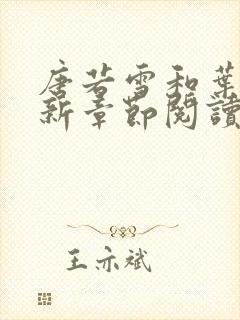 唐若雪和葉
新章節閱讀
王亦斌